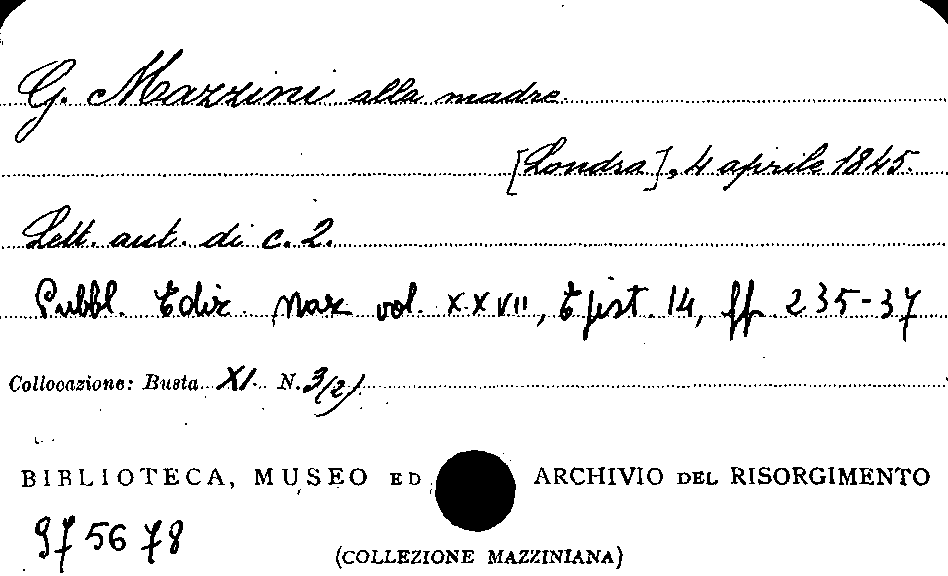 G. Mazzini alla madre.
[Londra], 4 aprile 1845.
Lett. aut. di c. 2.
Pubbl. Ediz. Naz vol. XXVII, Epist. 14, ff. 235-37
Collocazione: Busta XI. N. 3/(2)
BIBLIOTECA, MUSEO ED ARCHIVIO DEL RISORGIMENTO
975678
(COLLEZIONE MAZZINIANA)